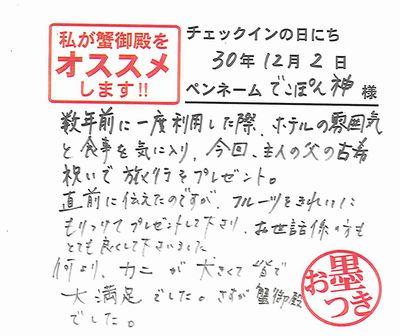 私が蟹御殿を
オススメ
します!!
チェックインの日にち
30年12月2日
ペンネーム でこぽん神 様
数年前に一度利用した際、ホテルの雰囲気
と食事を気に入り、今回、主人の父の古希
祝いで旅行をプレゼント。
直前に伝えたのですが、フルーツをきれいに
もりつけてプレゼントして下さり、お世話係の方も
とても良くして下さいました
何より、カニが大きくて皆で
大満足でした。さすが蟹御殿
でした。
お墨つき